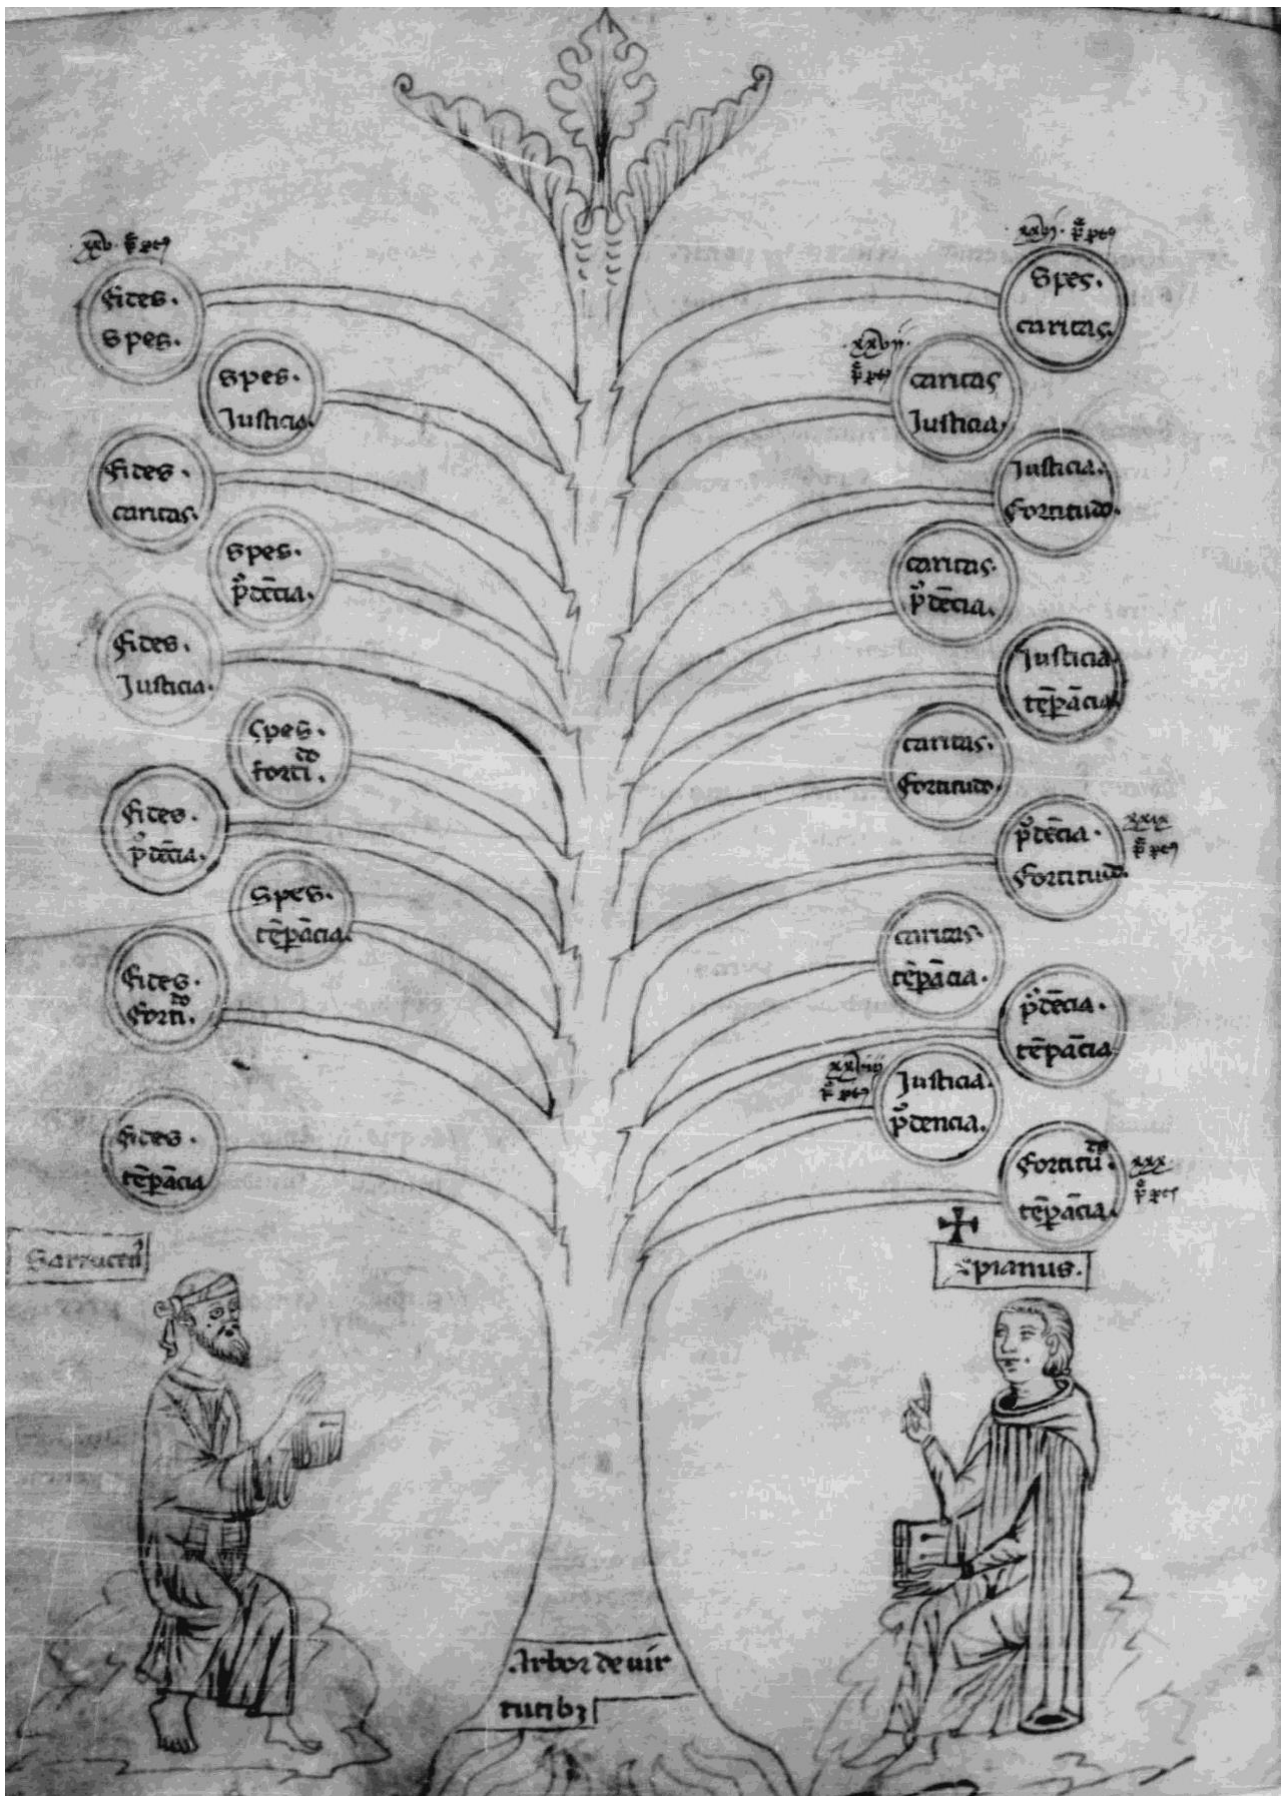 fides.
spes.
spes.
Justicia.
fides.
caritas.
spes.
pͥdēcia.
fides.
Justicia.
spes.
forti.ͩͦ
fides.
pͥdēcia.
spes.
tēpācia.
fides.
forti.ͩͦ
fides.
tēpācia
xxvi.
spes.
caritas.
xxvii.
caritas
Justicia.
Justicia.
fortitudo.
caritas.
pͥdēcia.
Justicia
tēpācia
caritas.
fortitudo.
pͥdēcia.
fortitudo.
xxix
caritas.
tēpācia.
pͥdēcia.
tēpācia
xxviii
Justicia.
pͥdencia.
fortitū.ͩͦ
tēpācia.
xxx
Sarracen᾽
xpianus.
Arbor de uir
tutibꝫ